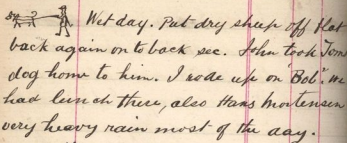 Wet day. Put dry sheep off flat
back again on to back sec. John took Toms
dog home to him. I rode up on "Bob". We
had lunch there, also Hans Mortensen
very heavy rain most of the day.